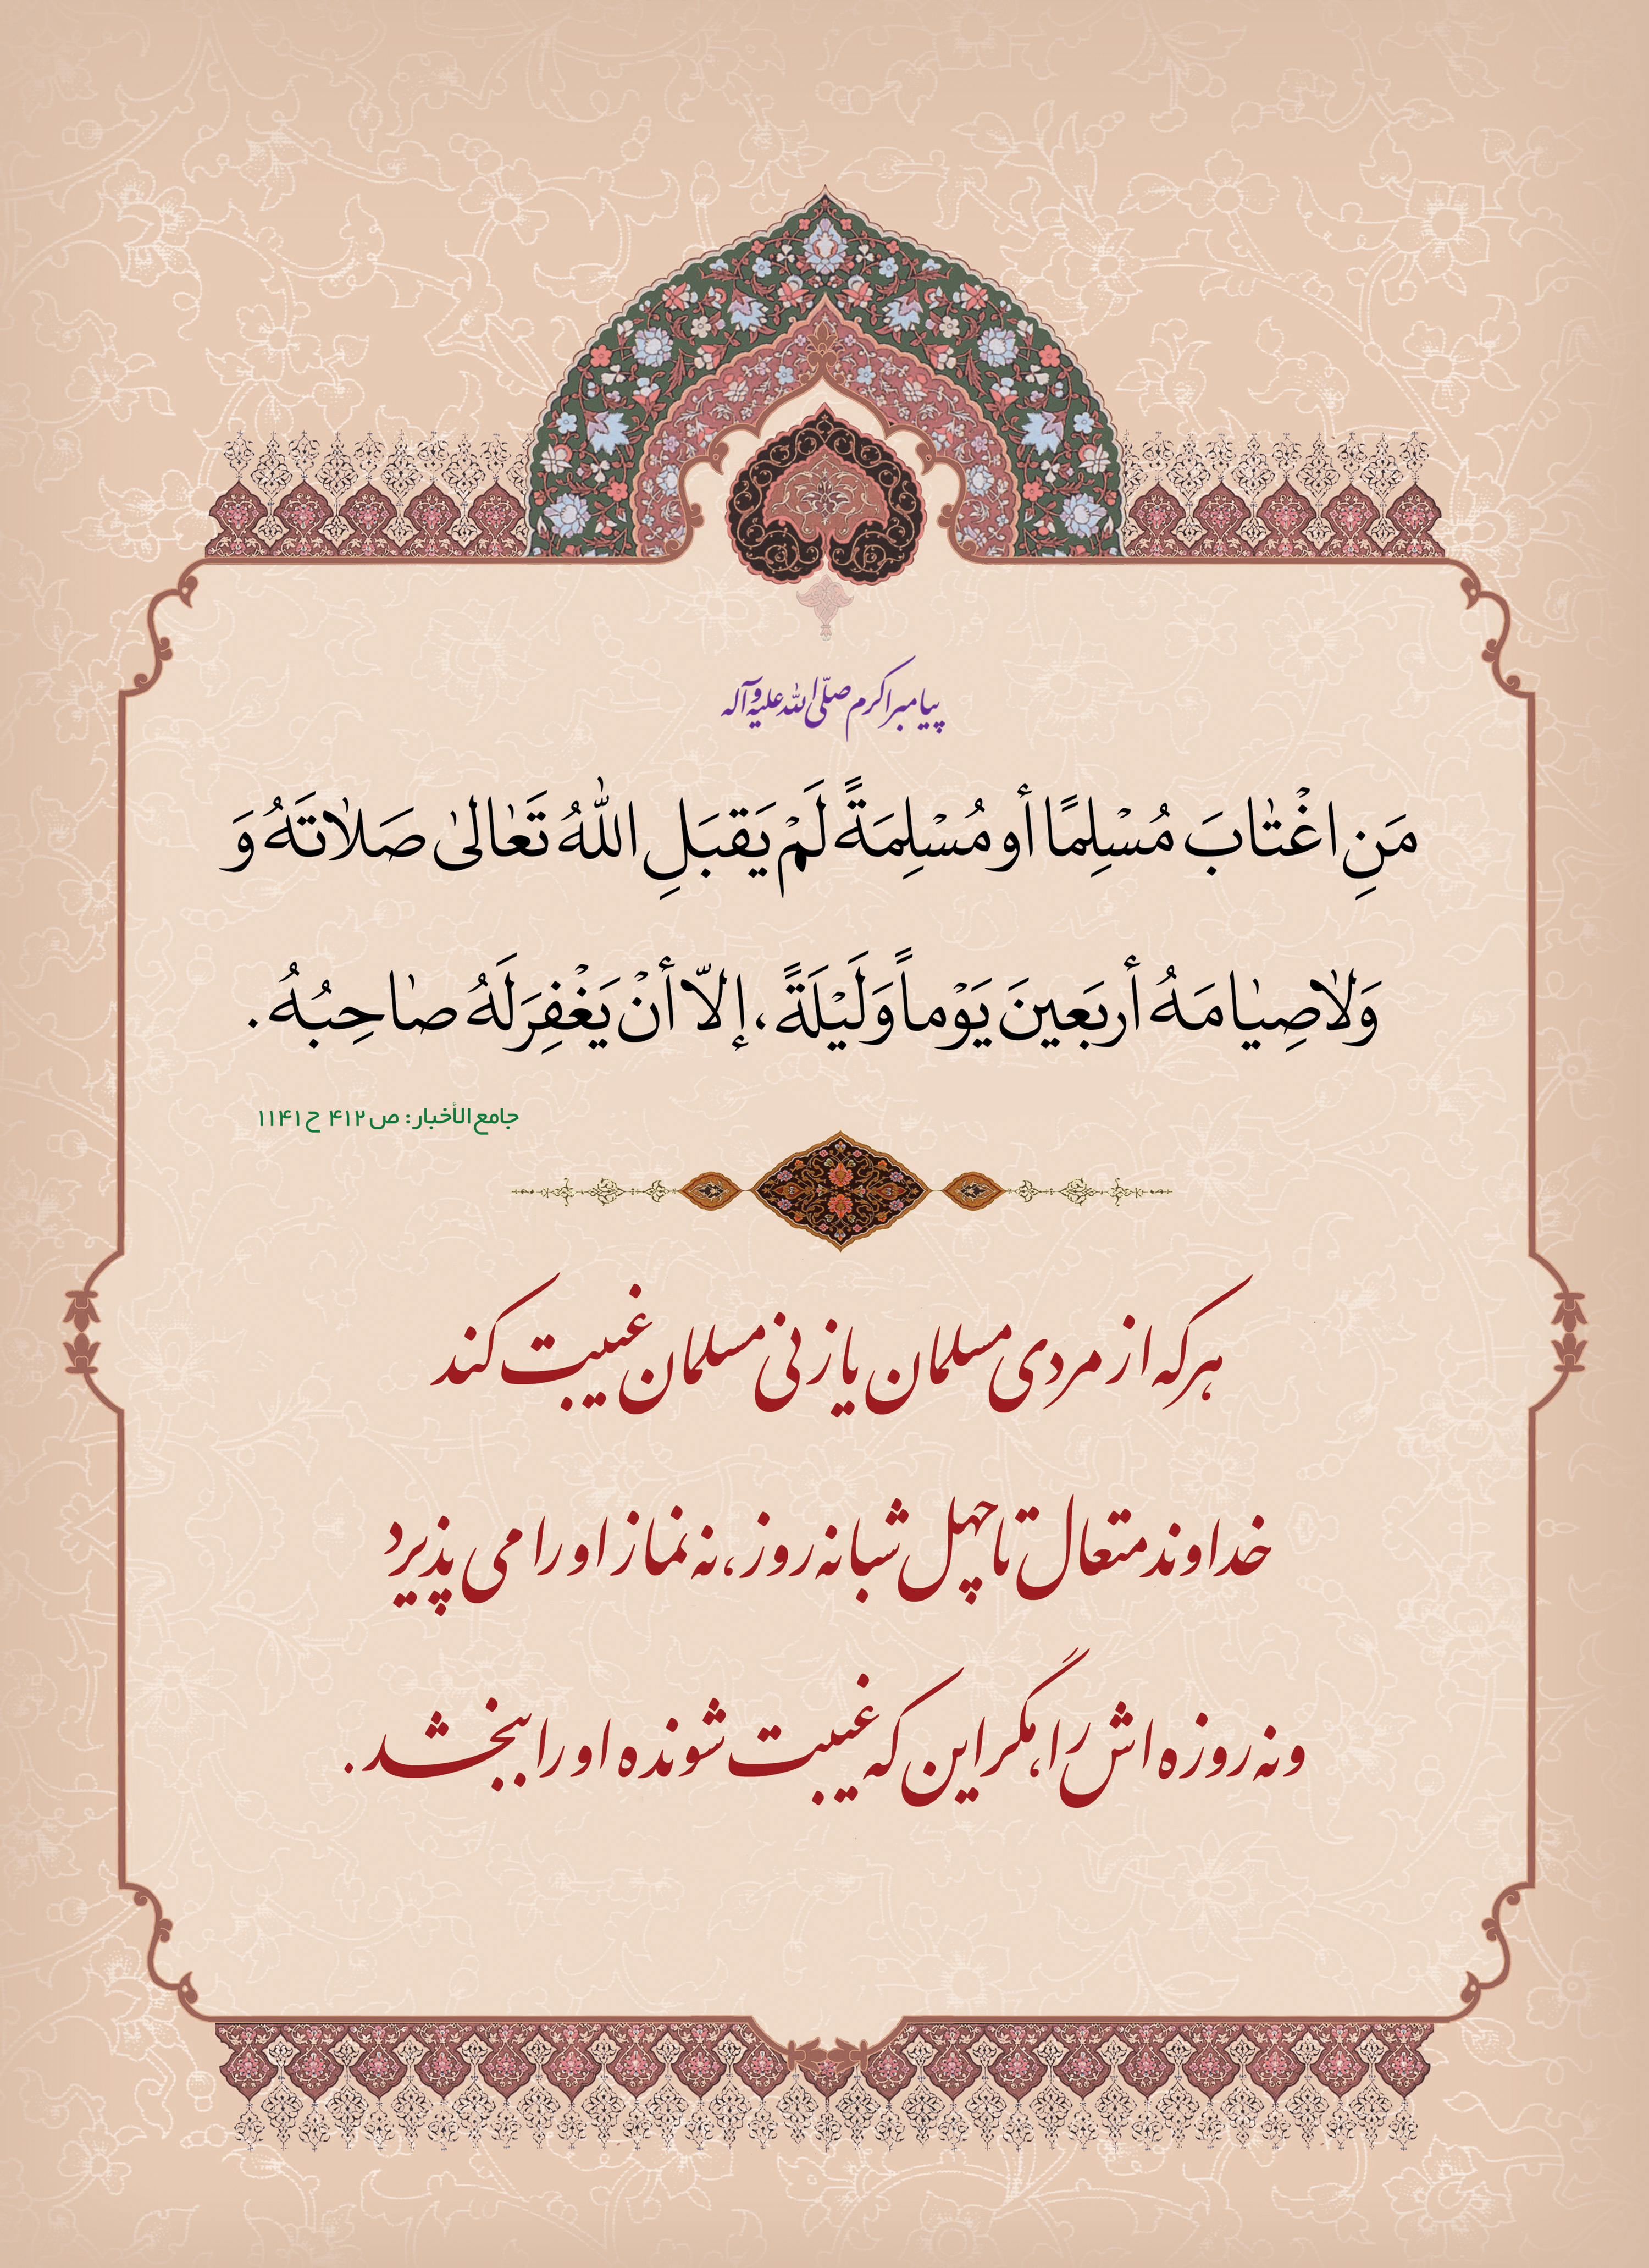 پیامبر اکرم صلّی الله علیه وآله
مَنِ اغْتٰابَ مُسْلِمًا أو مُسْلِمَةً لَمْ یَقبَلِ اللّٰهُ تَعٰالیٰ صَلاٰتَهُ وَ
وَلاٰصِیٰامَهُ أربَعینَ یَوْماً وَلَیْلَةً، إلاّ أنْ یَغْفِرَ لَهُ صٰاحِبُهُ.
جامع الأخبار: ص ۴۱۲ ح ۱۱۴۱
هر که از مردی مسلمان یا زنی مسلمان غیبت کند
خداوند متعال تا چهل شبانه روز، نه نماز او را می پذیرد
و نه روزه اش را، مگر این که غیبت شونده او را ببخشد.